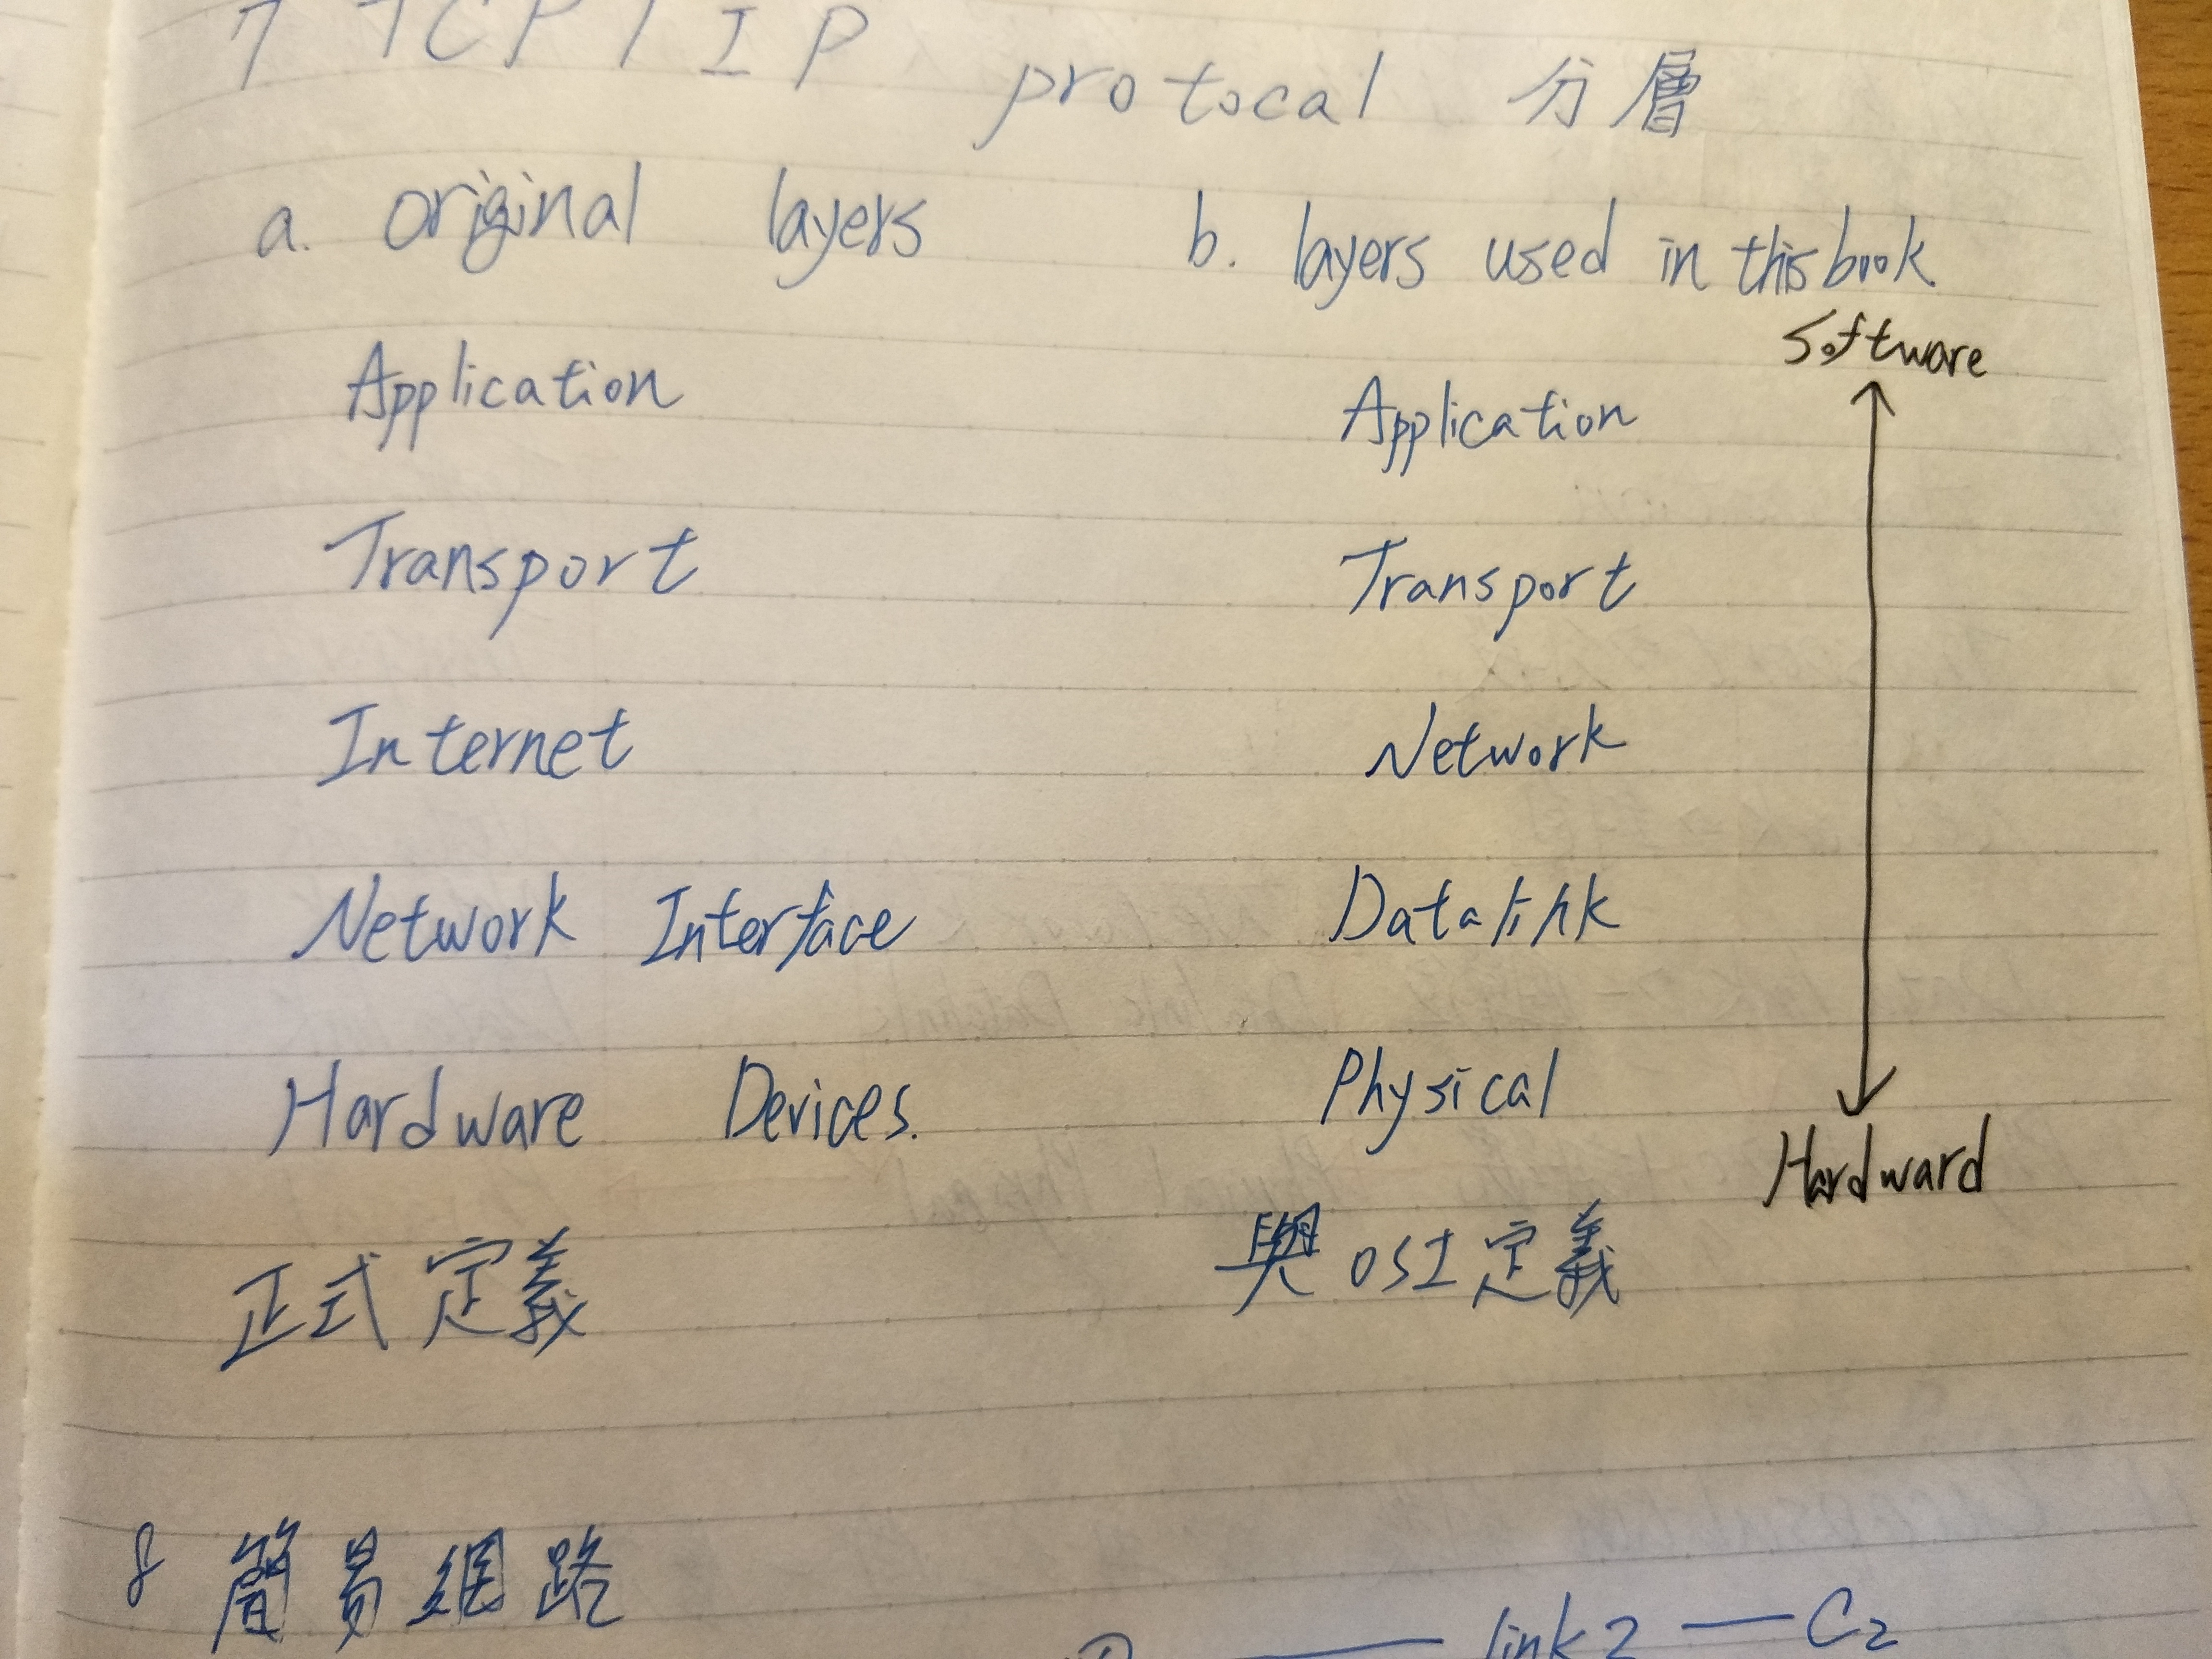 7 TCP/IP protocal 分層
a. original layers
b. layers used in this book
Software
Application
Application
Transport
Transport
Internet
Network
Network Interface
Datalink
Hardware Devices.
Physical
Hardward
正式定義
與OSI定義
8 簡易網路
link2 — C2